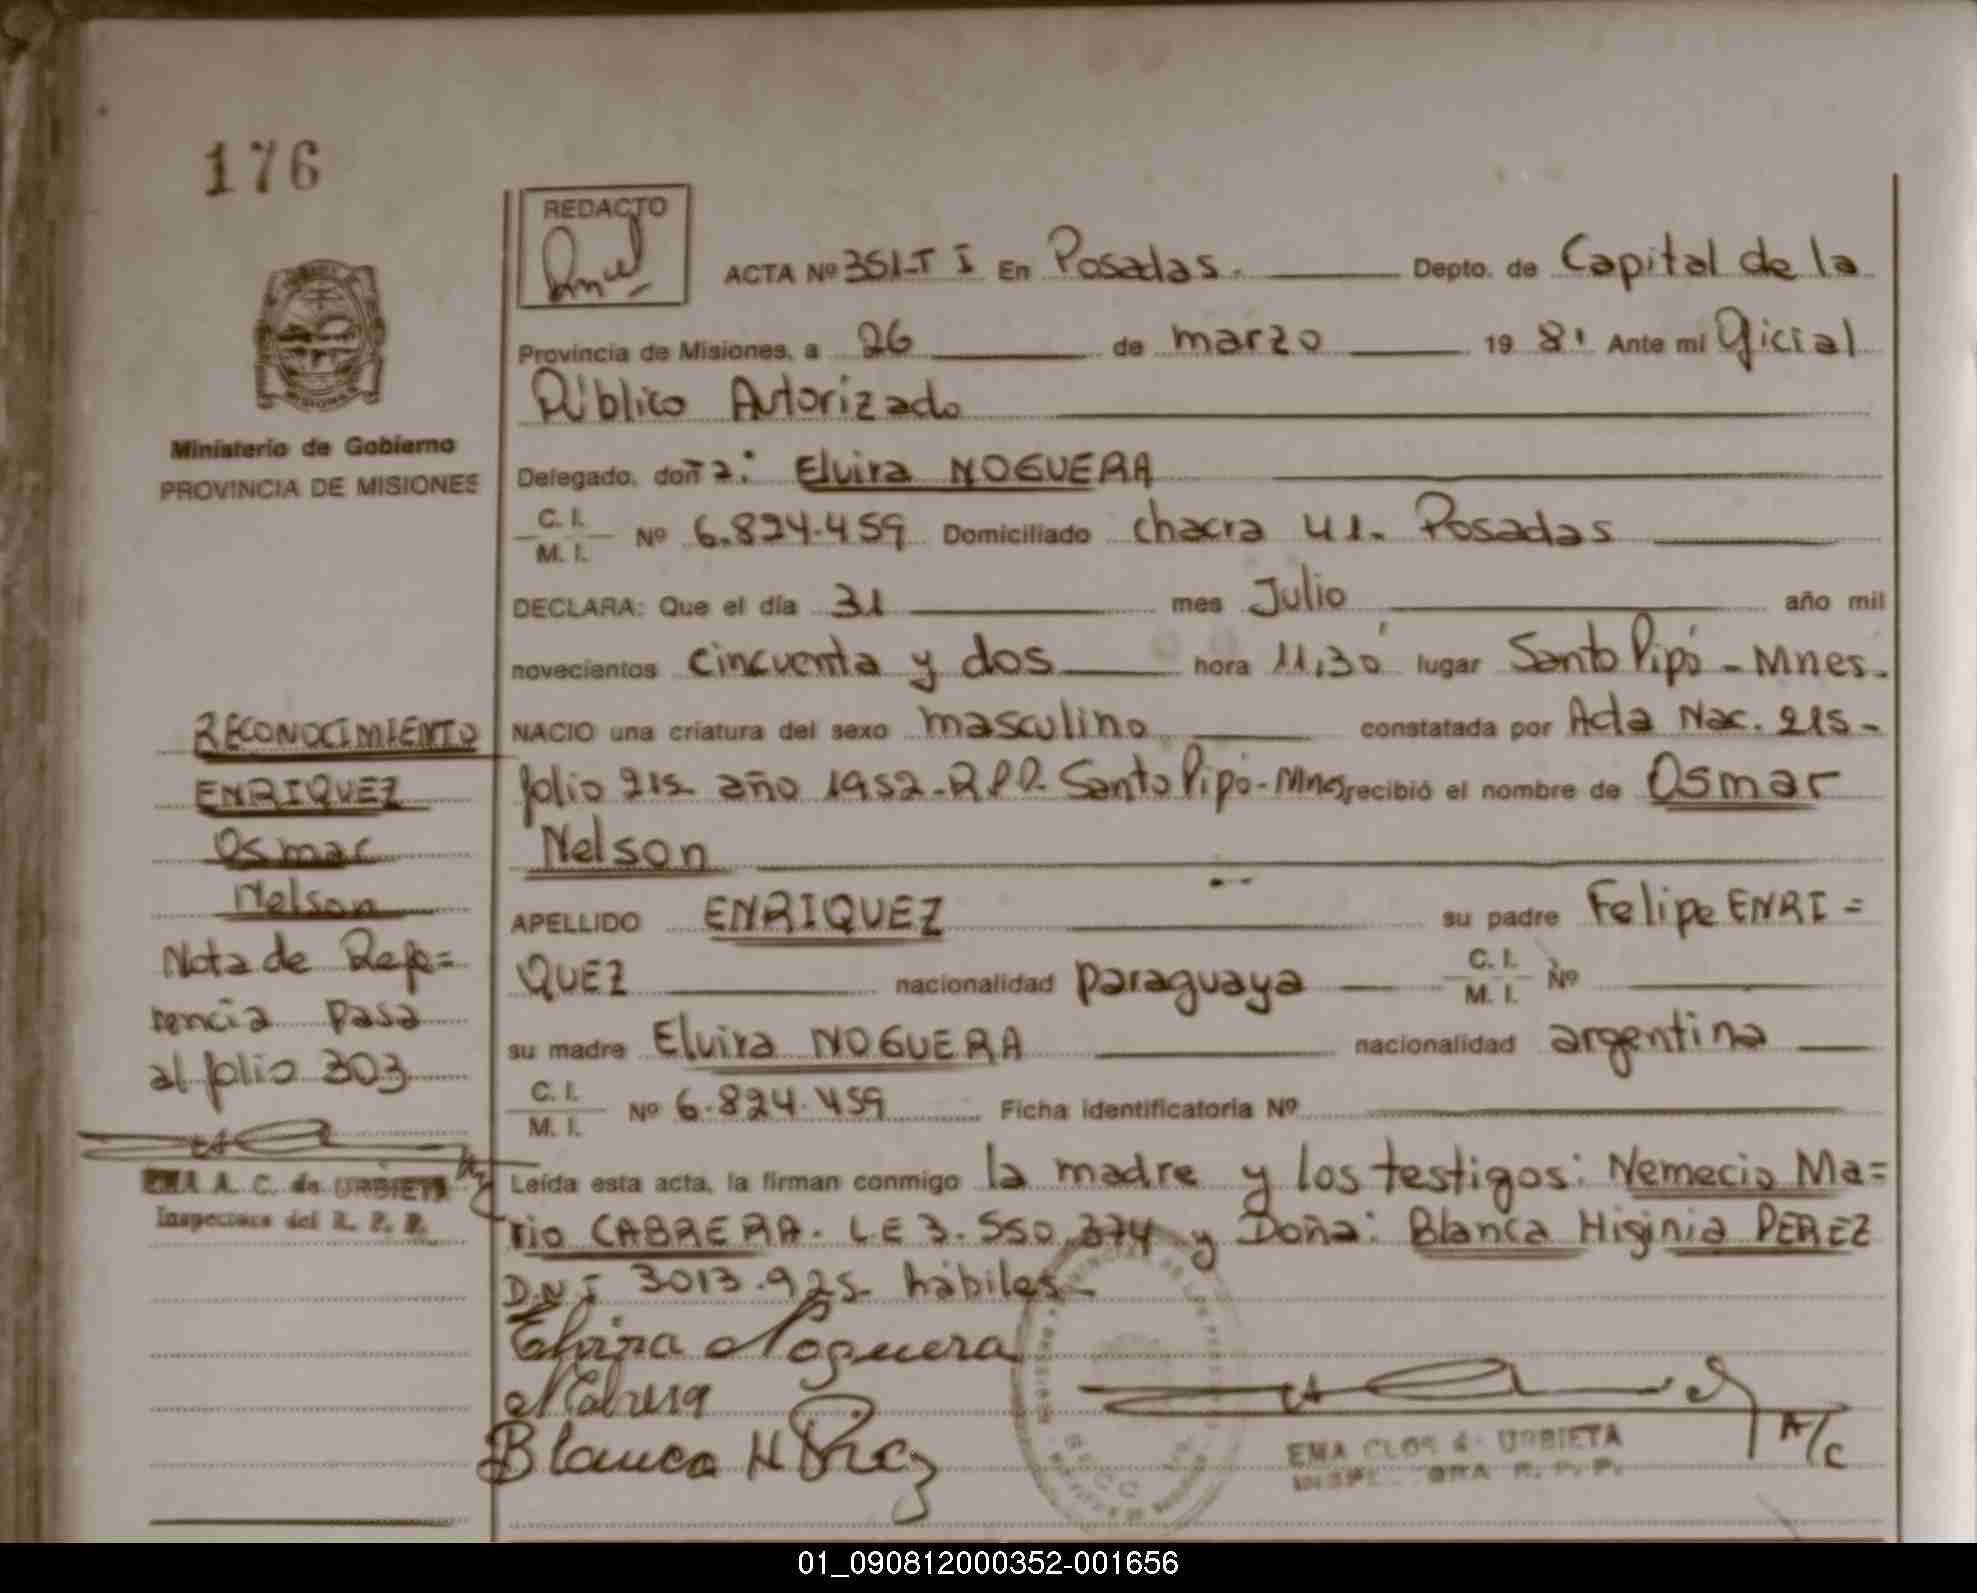 176
REDACTO
ACTA Nº 351-T I En Posadas. Depto. de Capital de la
Provincia de Misiones, a 26 de marzo 19 81 Ante mi Oficial
Público Autorizado
Ministerio de Gobierno
PROVINCIA DE MISIONES
Delegado, doña: Elvira NOGUERA
C. I.
M. I. Nº 6.824.459 Domiciliado chacra 41. Posadas
DECLARA: Que el día 31 mes Julio año mil
novecientos cincuenta y dos hora 11,30 lugar Santo Pipó - Mnes.
NACIO una criatura del sexo masculino constatada por Acta Nac. 215-
folio 215 año 1952-R.P.P. Santo Pipó-Mnes, recibió el nombre de Osmar
Nelson
APELLIDO ENRIQUEZ su padre Felipe ENRI=
QUEZ nacionalidad paraguaya C. I. M. I. Nº
su madre Elvira NOGUERA nacionalidad argentina
C. I.
M. I. Nº 6.824.459 Ficha identificatoria Nº
Leída esta acta, la firman conmigo la madre y los testigos: Nemecio Ma=
rio CABRERA. L E 3.550.374 y Doña: Blanca Higinia PEREZ
D.N I 3013.925 hábiles-
Elvira Noguera
Blanca H Pérez
RECONOCIMIENTO
ENRIQUEZ
Osmar
Nelson
Nota de Refe=
rencia pasa
al folio 303
EMA A. C. de URBIETA
Inspectora del R. P. P.
EMA CLOS de URBIETA
R. P. P.
A/C
01_090812000352-001656